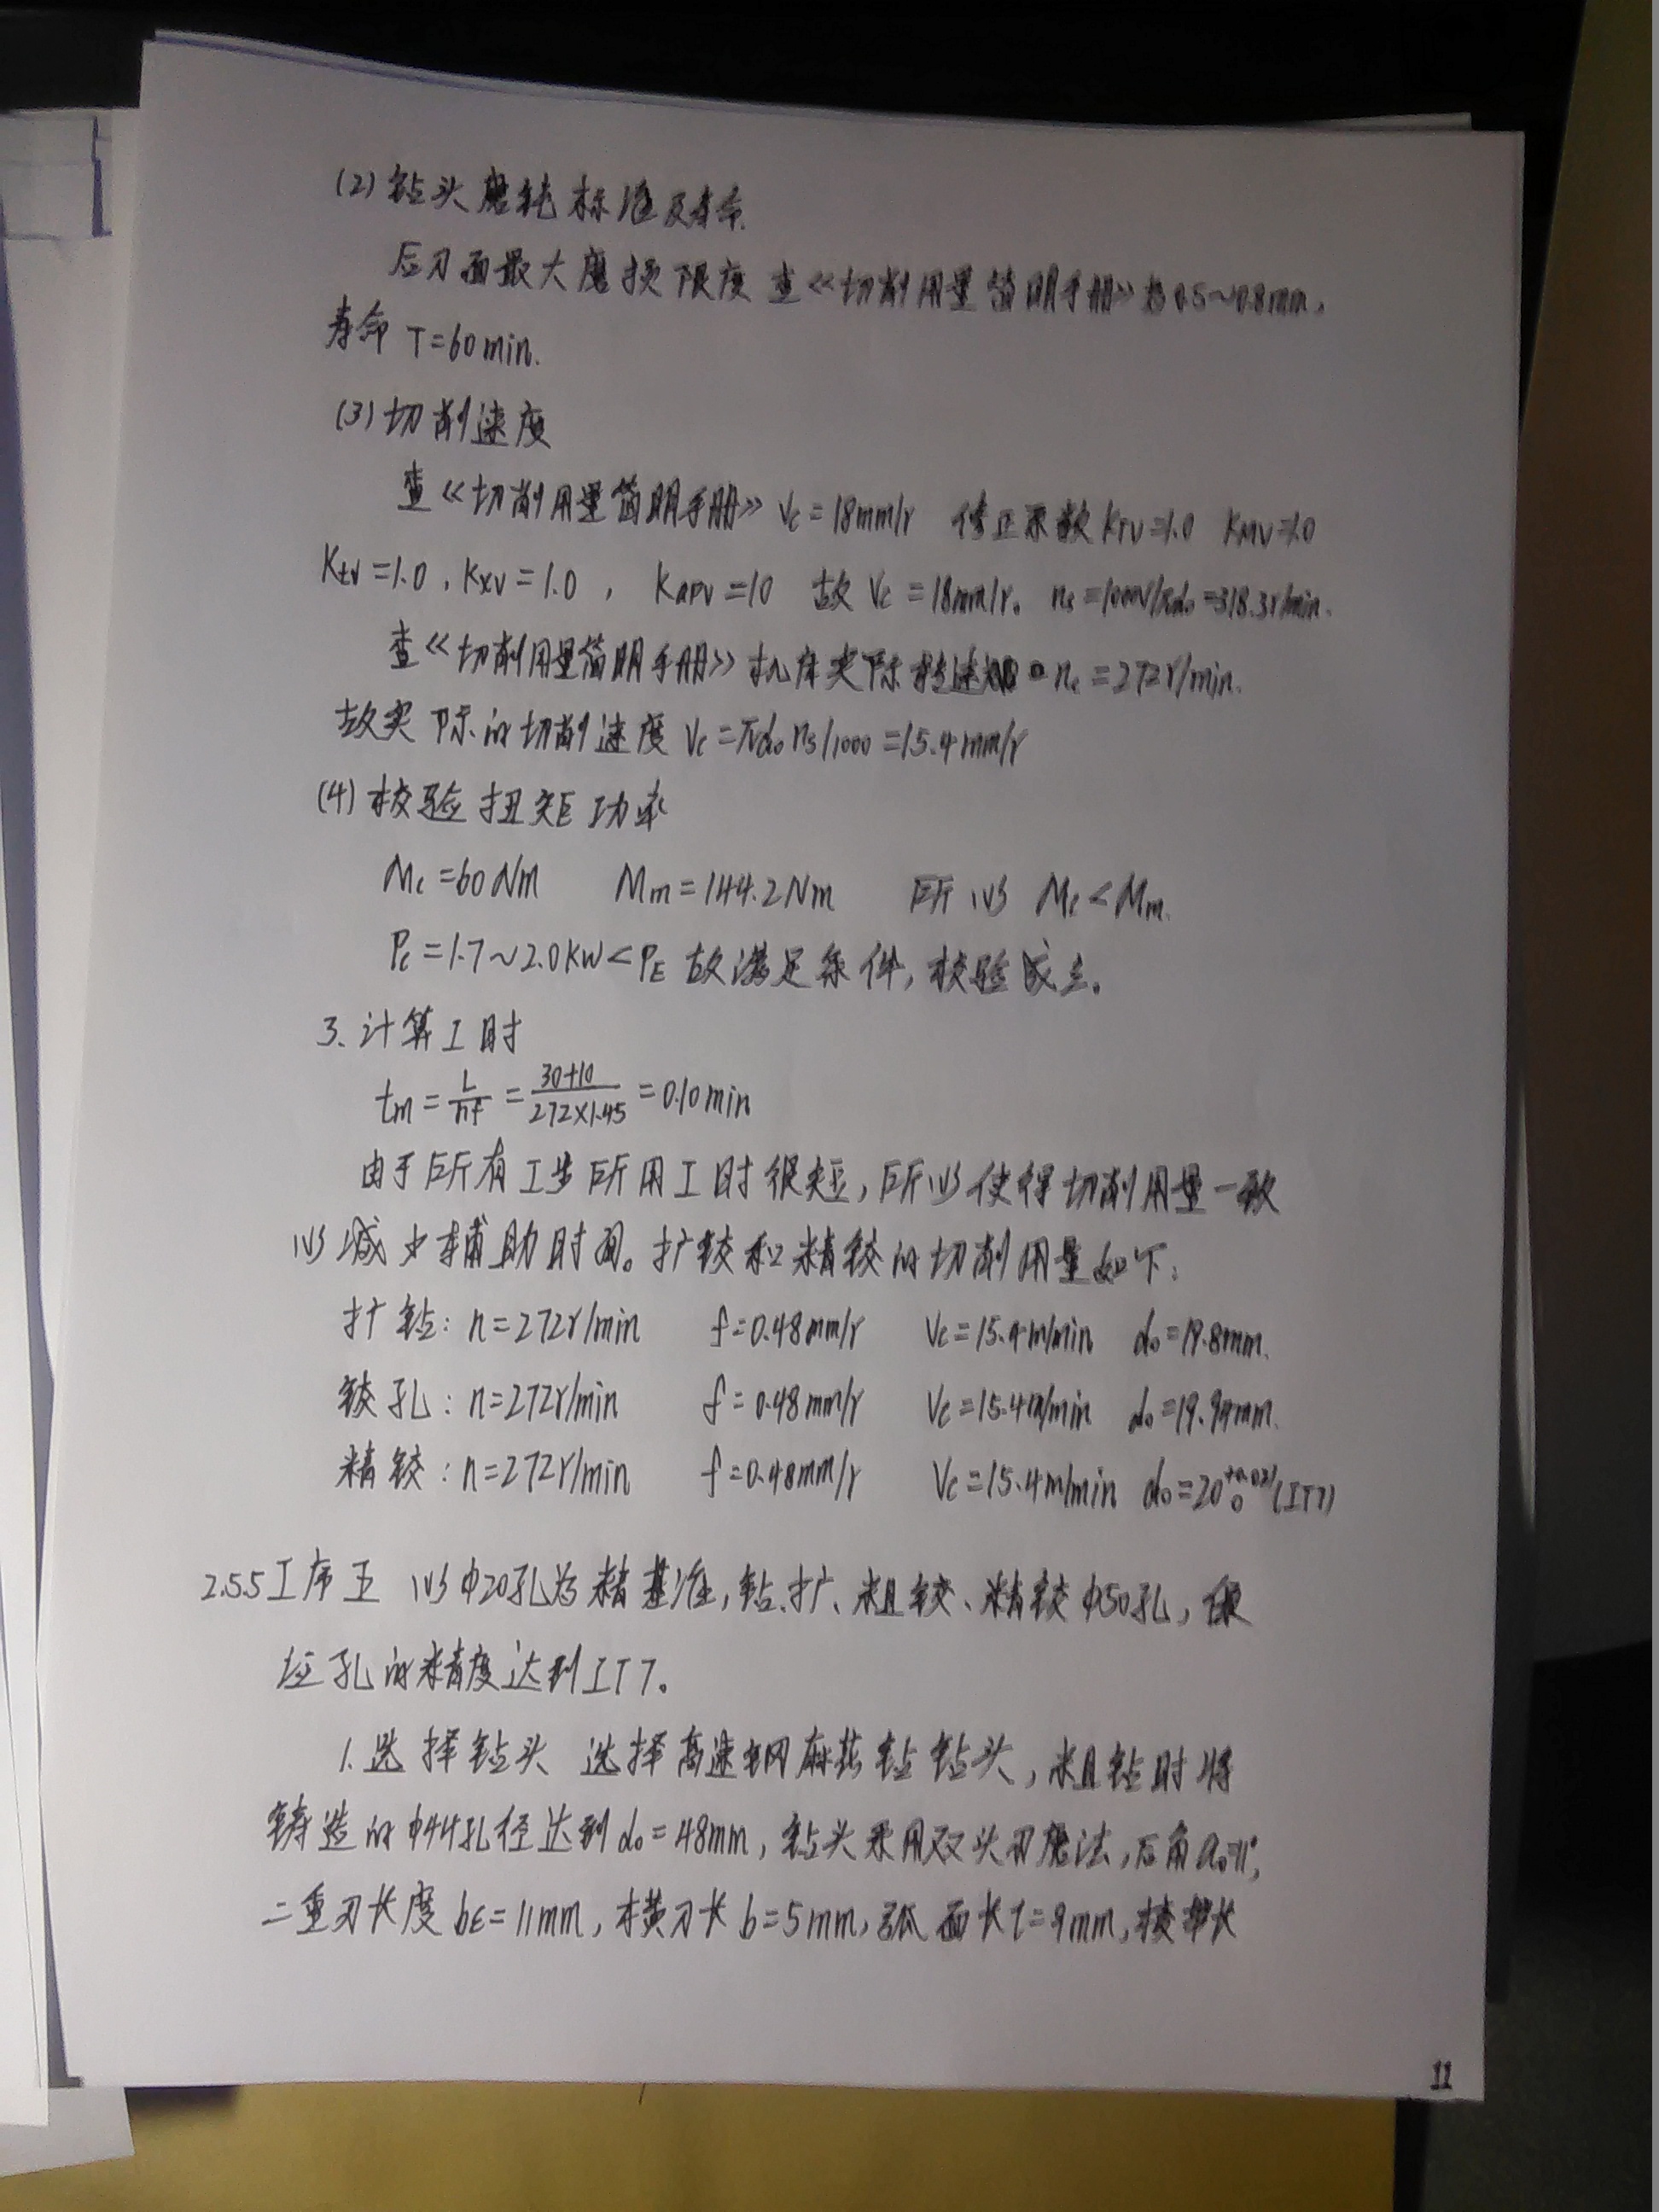 (2)钻头磨钝标准及寿命.
后刀面最大磨损限度 查《切削用量简明手册》为0.5~0.8mm,
寿命 T=60min.
(3)切削速度
查《切削用量简明手册》Vc=18mm/r 修正系数 KTV=1.0 KMV=1.0
Ktv=1.0,Kxv=1.0, Kapv=10 故 Vc=18mm/r。 ns=1000V/πd₀=318.3r/min.
查《切削用量简明手册》机床实际转速 nc=272r/min.
故实际的切削速度 Vc=πd₀ns/1000=15.4mm/r
(4)校验扭矩功率
Mc=60Nm Mm=144.2Nm 所以 Mc<Mm.
Pc=1.7~2.0kW<PE 故满足条件,校验成立。
3、计算工时
tm=L/nf=30+10/272×1.45=0.10min
由于所有工步所用工时很短,所以使得切削用量一致
以减少辅助时间。扩铰和精铰的切削用量如下:
扩钻:n=272r/min f=0.48mm/r Vc=15.4m/min d₀=19.8mm.
铰孔:n=272r/min f=0.48mm/r Vc=15.4m/min d₀=19.94mm.
精铰:n=272r/min f=0.48mm/r Vc=15.4m/min d₀=20+0.021 0(IT7)
2.5.5工序五 以φ20孔为精基准,钻、扩、粗铰、精铰φ50孔,保
证孔的精度达到IT7。
1.选择钻头 选择高速钢麻花钻钻头,粗钻时将
铸造的φ44孔径达到d₀=48mm,钻头采用双头刃磨法,后角α₀=11°,
二重刃长度bε=11mm,横刀长b=5mm,弧面长l=9mm,棱带长
11